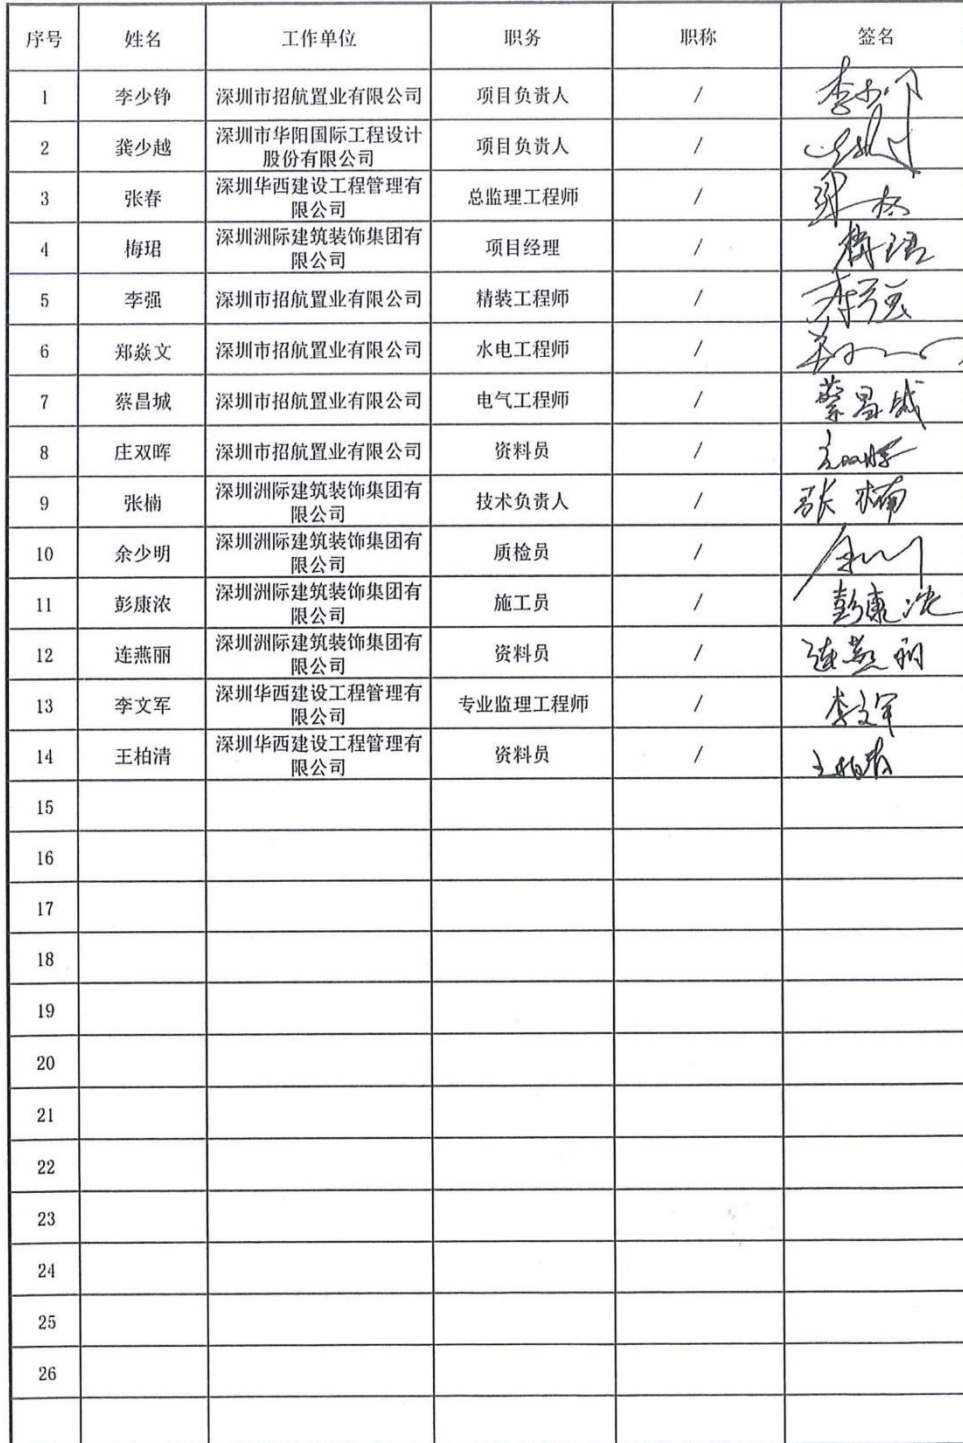 序号 姓名 工作单位 职务 职称 签名
1 李少铮 深圳市招航置业有限公司 项目负责人 /
2 龚少越 深圳市华阳国际工程设计
股份有限公司 项目负责人 /
3 张春 深圳华西建设工程管理有
限公司 总监理工程师 /
4 梅珺 深圳洲际建筑装饰集团有
限公司 项目经理 / 梅珺
5 李强 深圳市招航置业有限公司 精装工程师 / 李强
6 郑焱文 深圳市招航置业有限公司 水电工程师 /
7 蔡昌城 深圳市招航置业有限公司 电气工程师 / 蔡昌城
8 庄双晖 深圳市招航置业有限公司 资料员 / 庄双晖
9 张楠 深圳洲际建筑装饰集团有
限公司 技术负责人 / 张楠
10 余少明 深圳洲际建筑装饰集团有
限公司 质检员 /
11 彭康浓 深圳洲际建筑装饰集团有
限公司 施工员 / 彭康浓
12 连燕丽 深圳洲际建筑装饰集团有
限公司 资料员 / 连燕丽
13 李文军 深圳华西建设工程管理有
限公司 专业监理工程师 / 李文军
14 王柏清 深圳华西建设工程管理有
限公司 资料员 / 王柏清
15
16
17
18
19
20
21
22
23
24
25
26